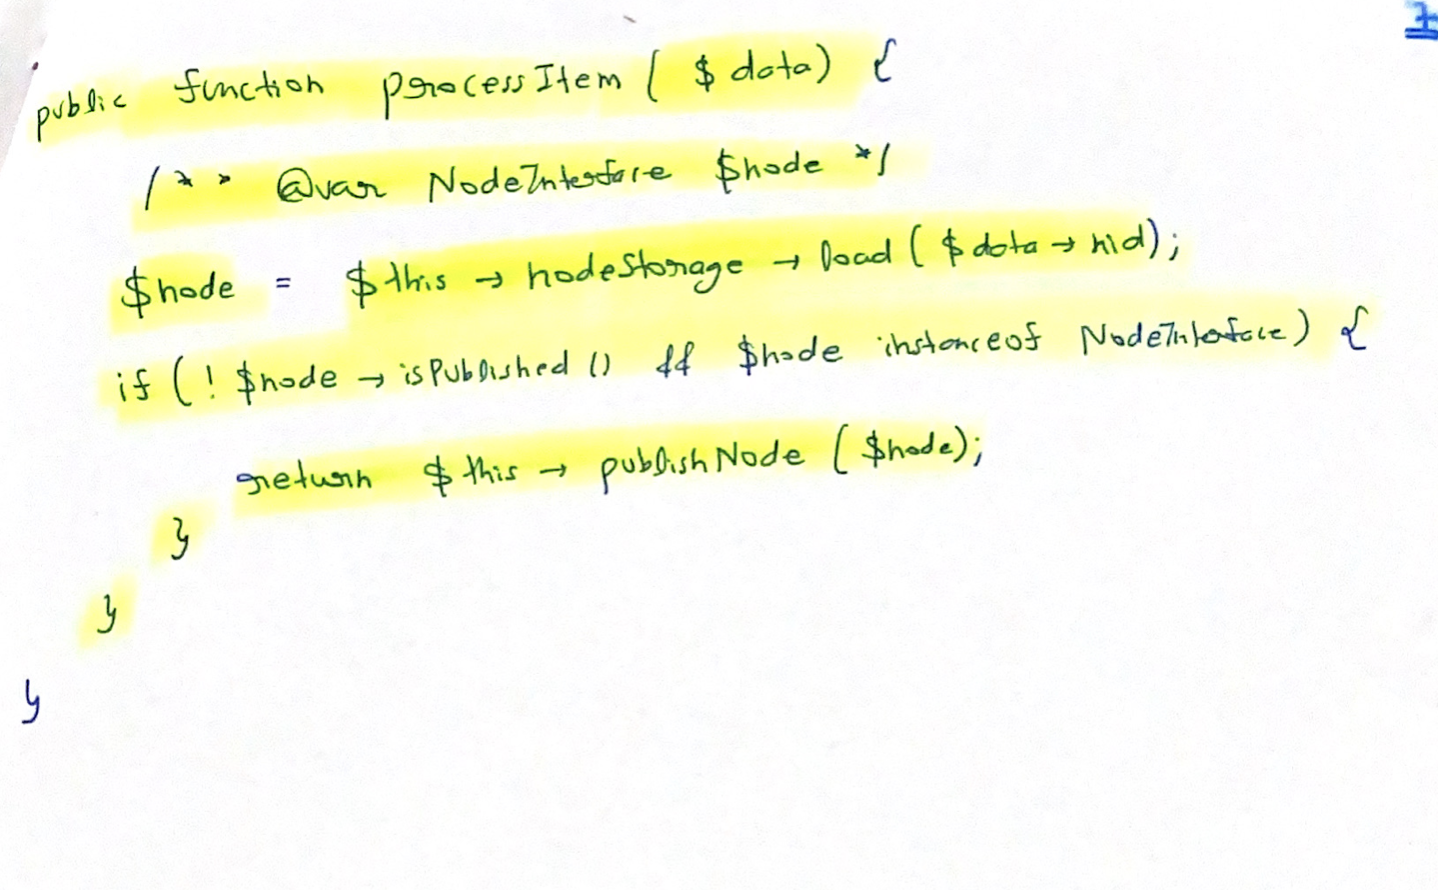 7
public function processItem ( $ data) {
/** @var NodeInterface $node */
$node = $this → nodeStorage → load ( $ data → nid);
if ( ! $node → isPublished () && $node instanceof NodeInterface) {
return $ this → publishNode ( $node);
}
}
}